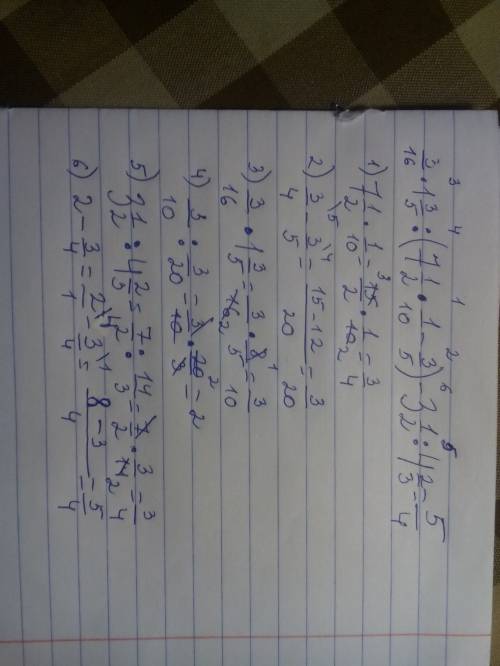 3 4 1 2 6 5
3/16 · 1 3/5 : (7 1/2 · 1/10 - 3/5) - 3 1/2 : 4 2/3 = 5/4
1) 7 1/2 · 1/10 = 15/2 · 1/10 = 3/4
2) 3/4 - 3/5 = (15-12)/20 = 3/20
3) 3/16 · 1 3/5 = 3/16 · 8/5 = 3/10
4) 3/10 : 3/20 = 3/10 · 20/3 = 2
5) 3 1/2 : 4 2/3 = 7/2 : 14/3 = 7/2 · 3/14 = 3/4
6) 2 - 3/4 = 2/1 - 3/4 = (8-3)/4 = 5/4